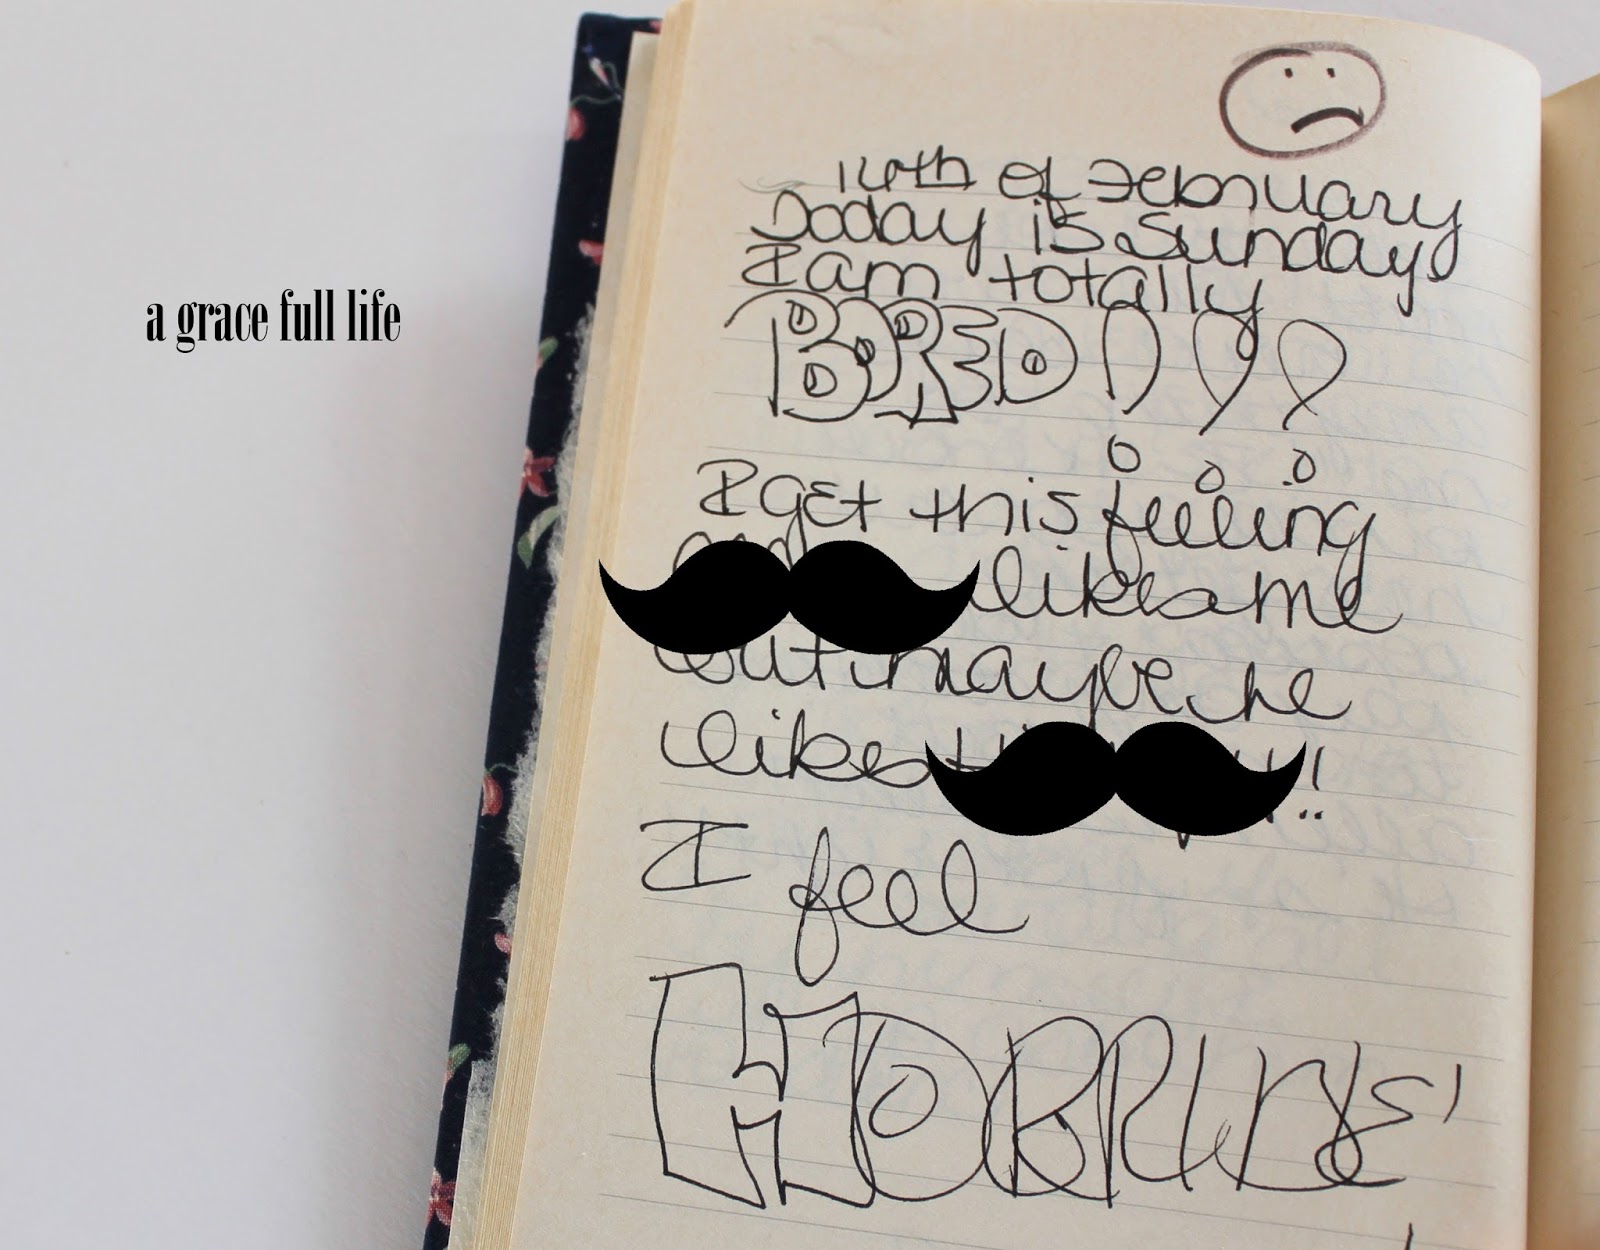 a grace full life
14th of February
Today is Sunday
I am totally
BORED!!!
I get this feeling
likes me
but maybe he
likes !!
I feel